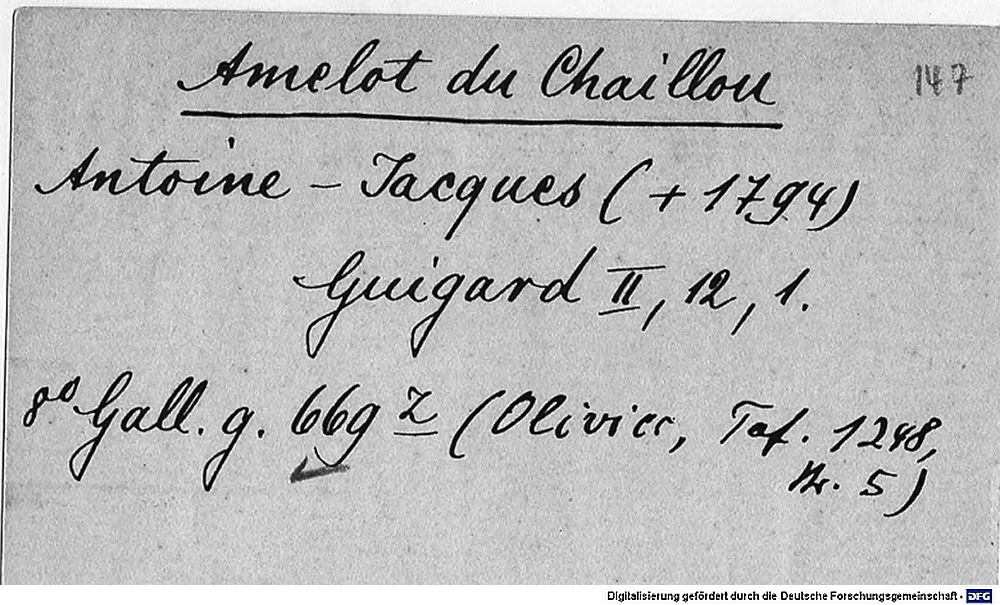 Amelot du Chaillou
147
Antoine - Jacques (+ 1794)
Guigard II, 12, 1.
8° Gall. g. 669 z (Olivier, Taf. 1248,
Nr. 5)
Digitalisierung gefördert durch die Deutsche Forschungsgemeinschaft - DFG